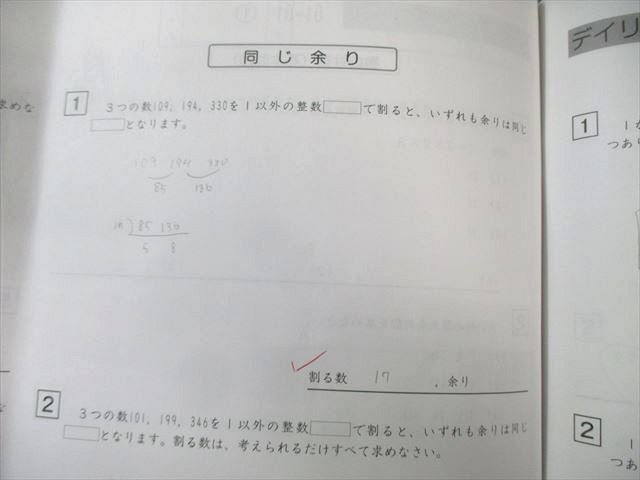 同じ余り
1 3つの数109, 194, 330を1以外の整数□で割ると、いずれも余りは同じ
□となります。
109 194 330
85 136
17)85 136
5 8
割る数 17 , 余り
2 3つの数101, 199, 346を1以外の整数□で割ると、いずれも余りは同じ
□となります。割る数は、考えられるだけすべて求めなさい。
求めな
デイリ
1 1か
つあり
2 1
つあ